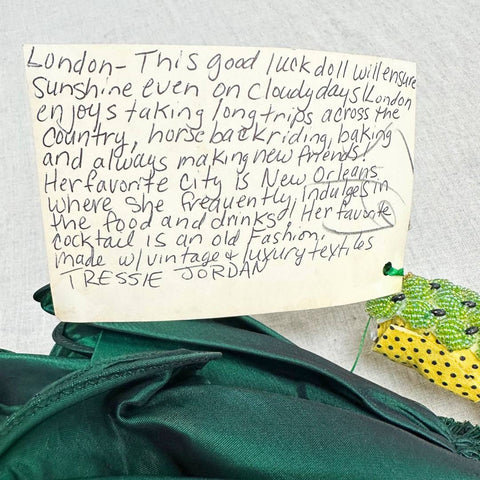 London - This good luck doll will ensure
Sunshine even on cloudy days! London
enjoys taking long trips across the
country, horseback riding, baking
and always making new friends!
Her favorite city is New Orleans
where she frequently indulges in
the food and drinks! Her favorite
cocktail is an old Fashion.
Made w/ vintage & luxury textiles
TRESSIE JORDAN